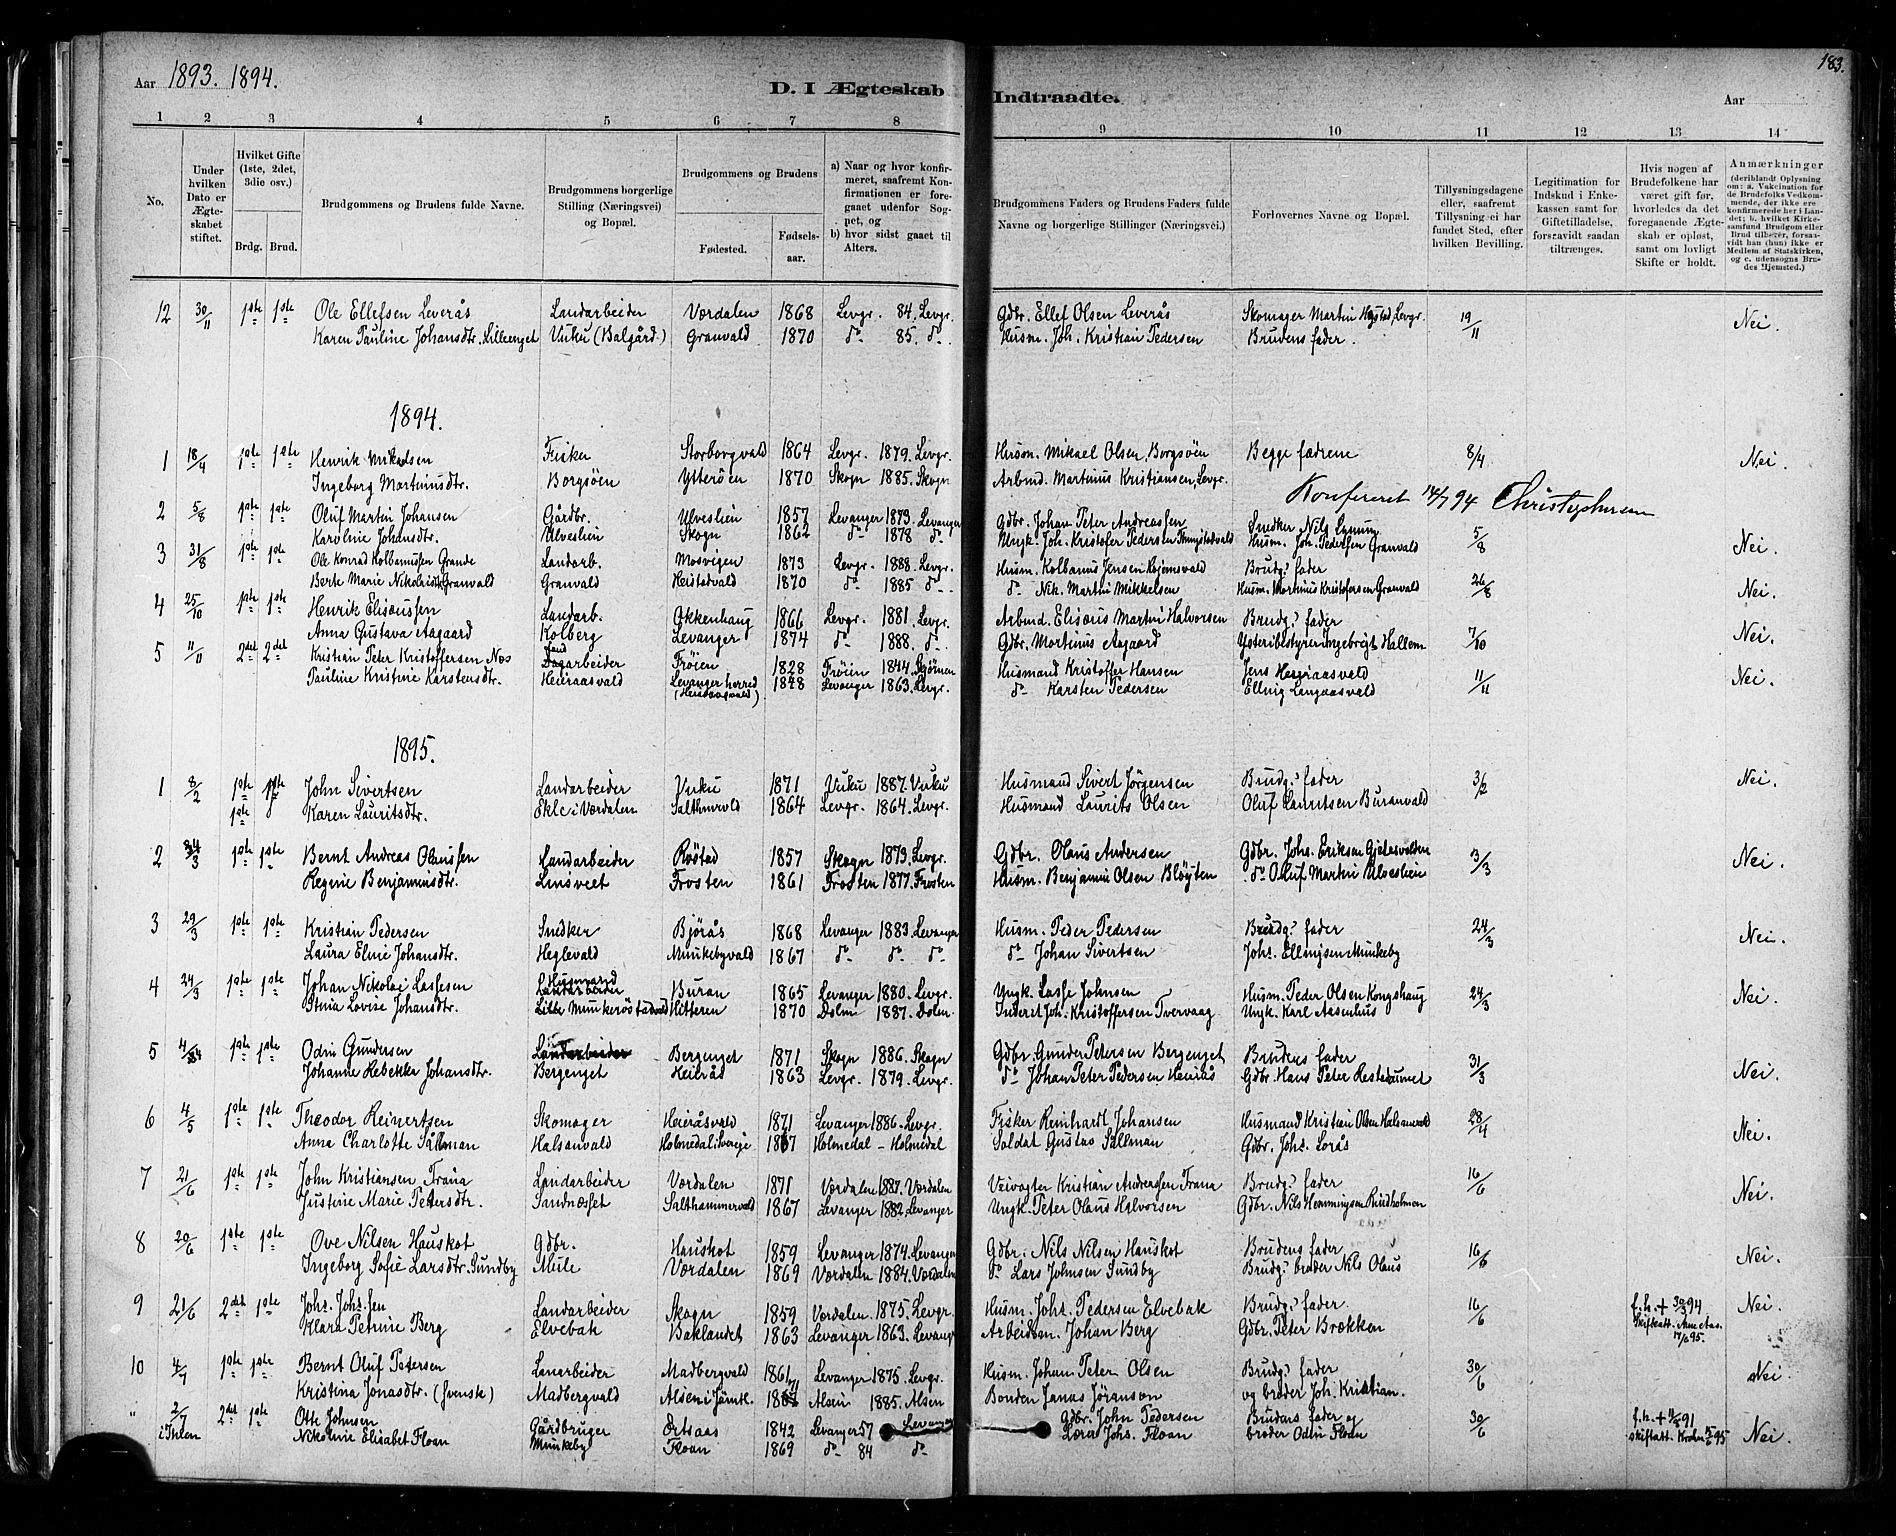 Aar 1893. 1894.
D. I Ægteskab Indtraadte.
Aar
183.
1 2 3 4 5 6 7 8 9 10 11 12 13 14
No.
Under hvilken Dato er Ægteskabet stiftet.
Hvilket Gifte (1ste, 2det, 3die osv.)
Brdg. Brud.
Brudgommens og Brudens fulde Navne.
Brudgommens borgerlige Stilling (Næringsvei) og Bopæl.
Brudgommens og Brudens
Fødested. Fødselsaar.
a) Naar og hvor konfirmeret, saafremt Konfirmationen er foregaaet udenfor Sognet, og
b) hvor sidst gaaet til Alters.
Brudgommens Faders og Brudens Faders fulde Navne og borgerlige Stillinger (Næringsvei.)
Forlovernes Navne og Bopæl.
Tillysningsdagene eller, saafremt Tillysning ei har fundet Sted, efter hvilken Bevilling.
Legitimation for Indskud i Enkekassen samt for Giftetilladelse, forsaavidt saadan tiltrænges.
Hvis nogen af Brudefolkene har været gift før, hvorledes da det foregaaende Ægteskab er opløst, samt om lovligt Skifte er holdt.
Anmærkninger (deriblandt Oplysning om: a. Vakcination for de Brudefolks Vedkommende, der ikke ere konfirmerede her i Landet; b. hvilket Kirkesamfund Brudgom eller Brud tilhører, forsaavidt han (hun) ikke er Medlem af Statskirken, og c. udensogns Brudes Hjemsted.)
12 30/11 1ste 1ste Ole Ellefsen Leverås Landarbeider Værdalen 1868 Levgr. 84. Levgr. Gdbr. Ellef Olsen Leverås Skomager Martin Levgr. 19/11 Nei.
Karen Pauline Johansdtr. Lilleenget Vuku (Balgård) Granvald 1870 do 85. do Husm. Joh. Kristian Pedersen Brudens fader.
1894.
1 18/4 1ste 1ste Henrik Mikaelsen Fisker Storborgvald 1864 Levgr. 1879. Levgr. Husm. Mikael Olsen, Borgsöen Begge fædrene 8/4 Nei.
Ingeborg Martinusdtr. Borgsöen Ytteröen 1870 Skogn 1885. Skogn Arbmd. Martinus Kristiansen, Levgr.
Konfereret 14/7 94 Christophersen
2 5/8 1ste 1ste Oluf Martin Johansen Gårdbr. Ulveslien 1857 Levanger 1873. Levanger Gdbr. Johan Peter Andreassen Snedker Nils 5/8 Nei.
Karoline Johansdtr. Ulveslien Skogn 1862 do 1878 do Ungk. Joh. Kristofer Pedersen Husm. Joh. Pedersen Granvald
3 31/8 1ste 1ste Ole Konrad Kolbanussen Grande Landarb. Mosvigen 1873 Levgr. 1888. Levgr. Husm. Kolbanus Jensen Brudg.s fader 26/8 Nei.
Berte Marie Nikolaisdtr. Granvald Granvald Heistadvald 1870 do 1885 do. do Nik. Martin Mikkelsen Husm. Martinus Kristofersen Granvald
4 25/10 1ste 1ste Henrik Elisæussen Landarb. Okkenhaug 1866 Levgr. 1881. Levgr. Arbmd. Elisæus Martin Halvorsen Brudg.s fader 7/10 Nei.
Anna Gustava Aagaard Kolberg Levanger 1874 do 1888. do. Gdbr. Martinus Aagaard Ysteribestyrer Ingebrigt Hallem
5 11/11 2det 2det Kristian Peter Kristoffersen Næs Landarbeider Fröien 1828 Fröien 1844. Husmand Kristoffer Hansen Jens Heiraasvald 11/11 Nei.
Pauline Kristine Karstensdtr. Heiraasvald Levanger herred 1848 Levanger 1863. Levgr. do Karsten Pedersen Elling Langaasvald
1895.
1 8/2 1ste 1ste John Sivertsen Landarbeider Vuku 1871 Vuku 1887. Vuku Husmand Sivert Jörgensen Brudg.s fader 3/2 Nei.
1ste Karen Lauritsdtr. Ekle i Værdalen 1864 Levgr. 1864. Levgr. Husmand Laurits Olsen Oluf Lauritsen Buranvald
2 1ste 1ste Bernt Andreas Olaussen Landarbeider Röstad 1857 Skogn 1873. Levgr. Gdbr. Olaus Andersen Gdbr. Johs. Eriksen 3/3 Nei.
Regine Benjaminsdtr. Linsveet Frosten 1861 Frosten 1877. Frosten Husm. Benjamin Olsen Blöyten do Oluf Martin Ulveslien
3 29/3 1ste 1ste Kristian Pedersen Snedker Bjørås 1868 Levanger 1883. Levanger Husm. Peder Pedersen Brudg.s fader 24/3 Nei.
Laura Eline Johansdtr. Heglevald Munkebyvald 1867 do do do do Johan Sivertsen Johs. Ellingsen Munkeby
4 24/3 1ste 1ste Johan Nikolai Lassesen Husmand Buran 1865 Levanger 1880. Levgr. Ungk. Lasse Johnsen Husm. Peder Olsen Kongshaug 24/3 Nei.
Stina Lovise Johansdtr. Lille Munkeröstadvald Hitteren 1870 Dolm 1887. Dolm. Inderst Joh. Kristoffersen Tvervaag Ungk. Karl Aasenhus
5 1ste 1ste Odin Gundersen Landarbeider Bergenget 1871 Skogn 1886. Skogn Gdbr. Gunder Petersen Bergenget Brudens fader 31/3 Nei.
Johanne Rebekka Johansdtr. Bergenget Heirås 1863 Levgr. 1879. Levgr. do Johan Peter Pedersen Heirås Gdbr. Hans Peter
6 4/5 1ste 1ste Theodor Reinertsen Skomager Heieråsvald 1871 Levanger 1886. Levgr. Fisker Reinhardt Johansen Husmand Kristian Olsen Halsanvald 28/4 Nei.
Anna Charlotte Sållman Halsanvald Holmedal i Sverige 1867 Holmedal – Holmedal Soldat Gustav Sållman Gdbr. Johs. Lorås
7 21/6 1ste 1ste John Kristiansen Tråna Landarbeider Værdalen 1871 Værdalen 1887. Værdalen Veivogter Kristian Andreassen Trana Brudg.s fader 16/6 Nei.
Justine Marie Petersdtr. Sandnæsset Salthammervald 1867 Levanger 1882. Levanger Ungk. Peter Olaus Halvorsen Gdbr. Nils Hemmingsen Rindholmen
8 20/6 1ste 1ste Ove Nilsen Hauskot Gdbr. Hauskot 1859 Levanger 1874. Levanger Gdbr. Nils Nilsen Hauskot Brudens fader 16/6 Nei.
Ingeborg Sofie Larsdtr. Sundby Mule Værdalen 1869 Værdalen 1884. Værdalen do Lars Johnsen Sundby Brudg.s broder Nils Olaus
9 21/6 2det 1ste Johs. Johs.sen Landarbeider Skogn 1859 Værdalen 1875. Levgr. Husm. Johs. Pedersen Elvebak Brudg.s fader 16/6 f. h. + 30/3 94 Nei.
Klara Petrine Berg Elvebak Baklandet 1863 Levanger 1863. Levangr Arbeidsm. Johan Berg Gdbr. Peter Brækken Skifteatt. 17/6 95.
10 4/7 1ste 1ste Bernt Oluf Petersen Lanarbeider Madbergvald 1861 Levanger 1875. Levgr. Husm. Johan Peter Olsen Brudg.s fader 30/6 Nei.
Kristina Jonasdtr. (svensk) Madbergvald Alsen i Jämtl. Alsen 1885. Alsen Bonden Jonas Jöranson og broder Joh. Kristian.
" 2/7 i Thlem 2det 1ste Otte Johnsen Gårdbruger Ortsaas 1842 Levanger 57 Levanger Gdbr. John Pedersen Brudens fader og 30/6 f. h. + 11/8 91 Nei.
Nikoline Elisabet Floan Munkeby Floan 1869 do 84 do Lærer Johs. Floan broder Odin Floan skifteatt.